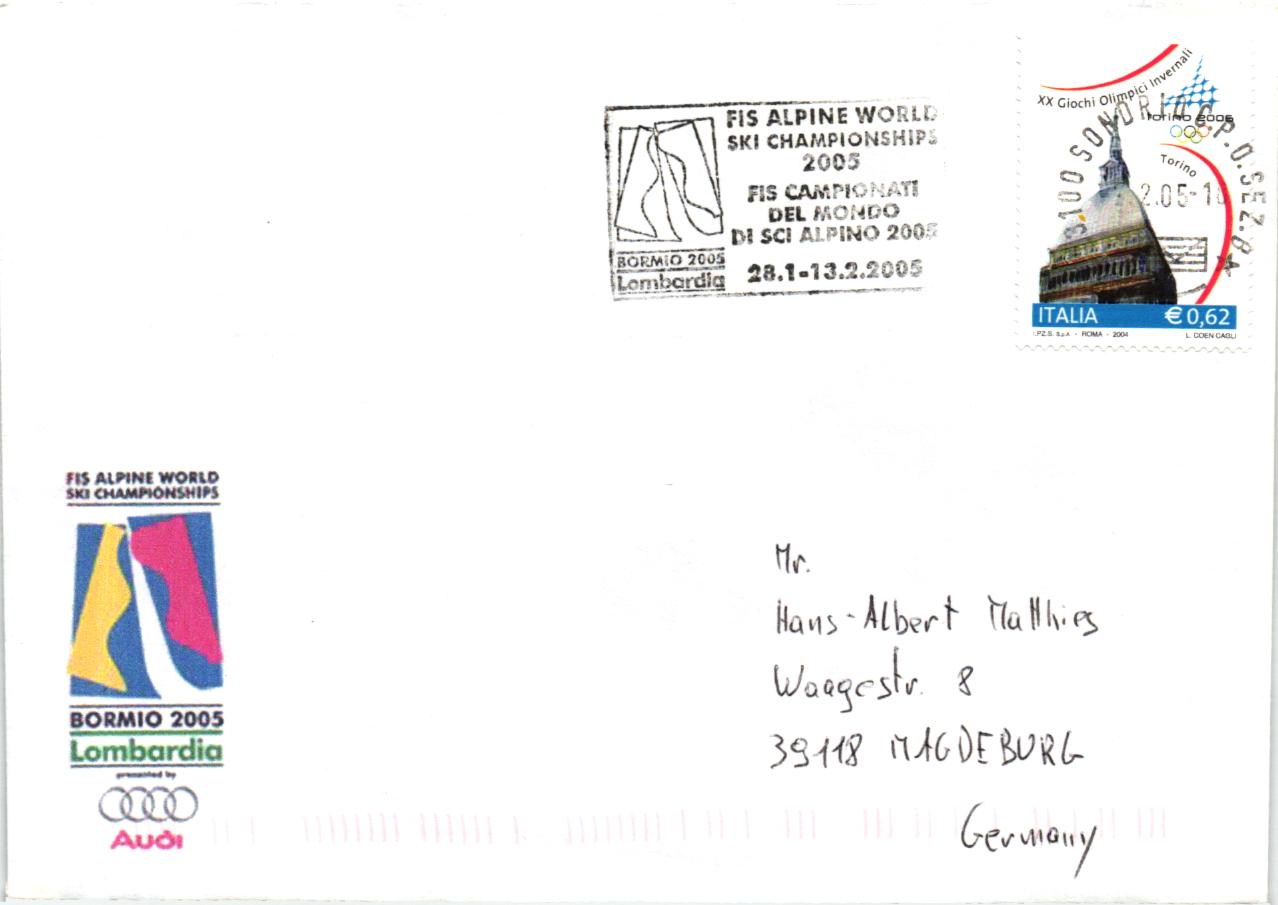 XX Giochi Olimpici Invernali
Torino 2006
Torino
ITALIA €0,62
I.P.Z.S. S.p.A. - ROMA - 2004 L. COEN CAGLI
3100 SONDRIO C.P.O. SEZ.
2.05-1
FIS ALPINE WORLD
SKI CHAMPIONSHIPS
2005
FIS CAMPIONATI
DEL MONDO
DI SCI ALPINO 2005
28.1-13.2.2005
BORMIO 2005
Lombardia
FIS ALPINE WORLD
SKI CHAMPIONSHIPS
BORMIO 2005
Lombardia
presented by
Audi
Mr.
Hans-Albert Matthies
Waagestr. 8
39118 MAGDEBURG
Germany